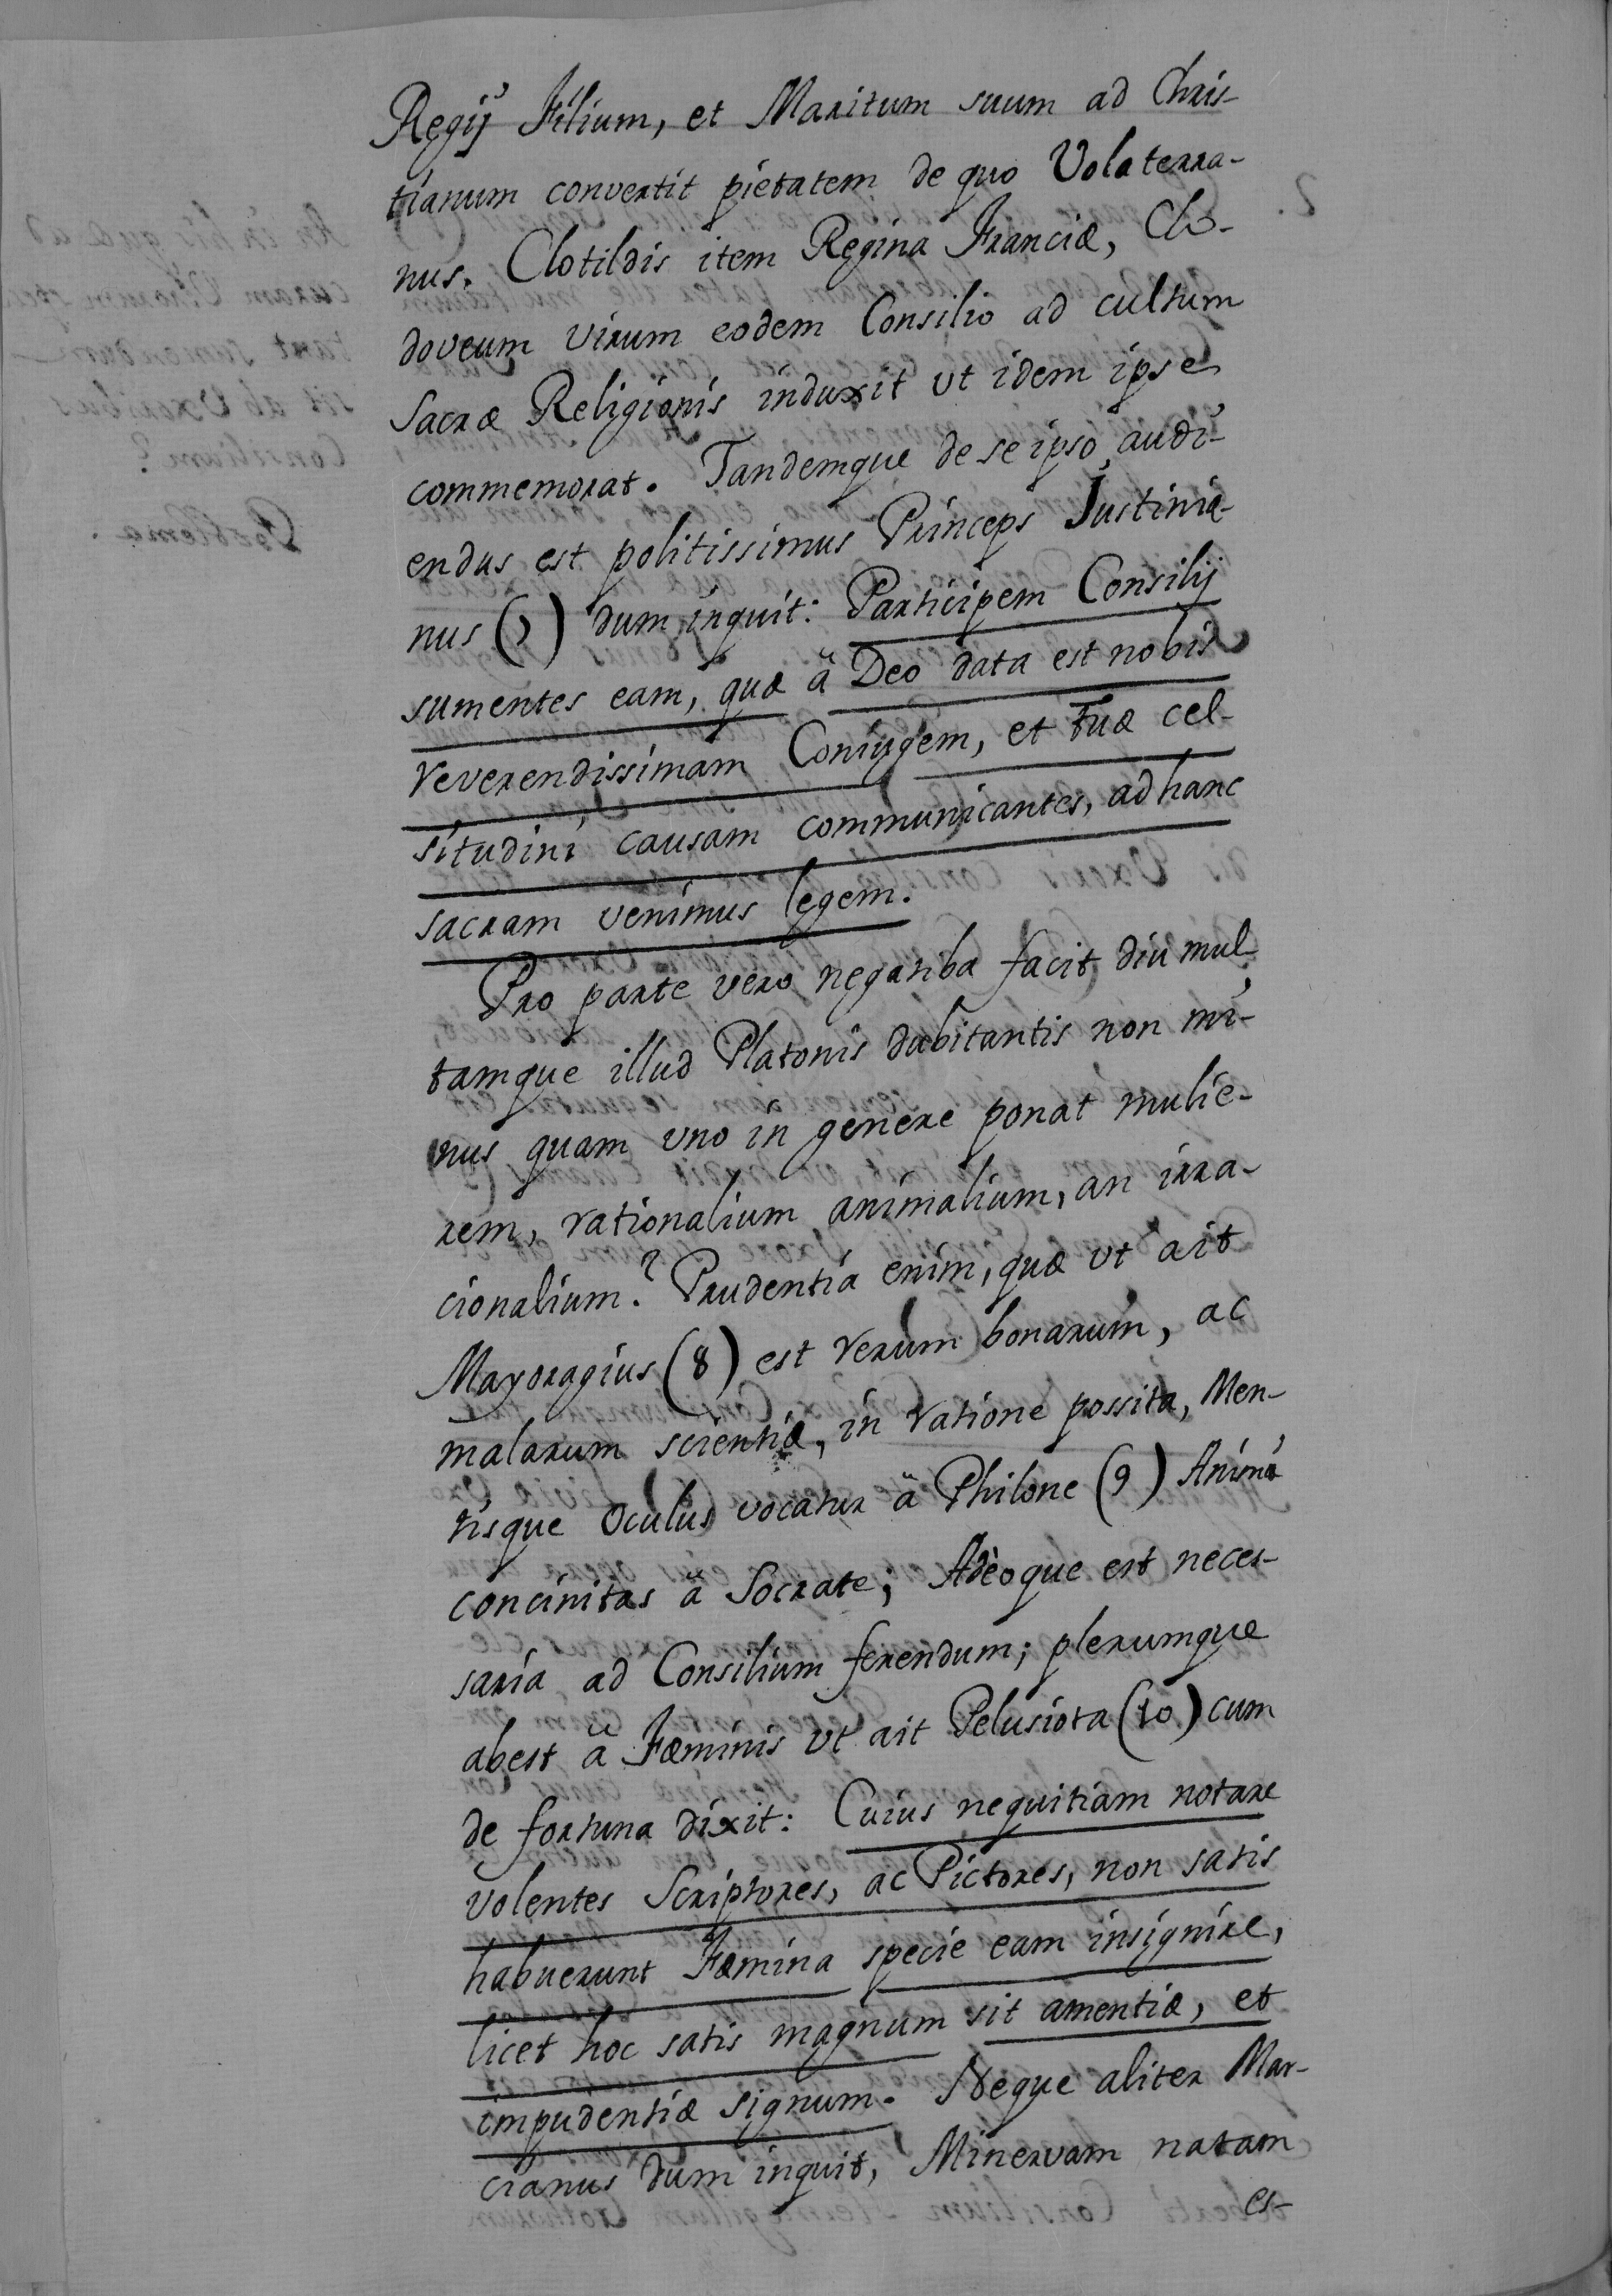 Regij Filium, et Maritum suum ad Chris-
tianum convertit pietatem de quo Volaterra-
nus. Clotildis item Regina Franciæ, Clo-
doveum virum eodem Consilio ad cultum
Sacræ Religionis induxit ut idem ipse
commemorat. Tandemque de se ipso audi-
endus est politissimus Princeps Justinia-
nus (7) dum inquit: Participem Consilij
sumentes eam, quæ â Deo data est nobis
reverendissimam Coniugem, et tuæ cel-
situdini causam communicantes, ad hanc
sacram venimus legem.
Pro parte vero negatiba facit diu mul-
tamque illud Platonis dubitantis non mi-
nus quam uno in genere ponat mulie-
rem, rationalium animalium, an irra-
cionalium? Prudentia enim, quæ ut ait
Mayoragius (8) est rerum bonarum, ac
malarum scientiæ, in ratione possita, Men-
tisque Oculus vocatur â Philone (9) Animi
concinitas â Socrate; Adèoque est neces-
saria ad Consilium ferendum; plerumque
abest â Fæminis ut ait Pelusiota (10) cum
de fortuna dixit: Cuius nequitiam notare
volentes Scriptores, ac Pictores, non satis
habuerunt Fæmina specie eam insignire,
licet hoc satis magnum sit amentiæ, et
impudentiæ signum. Neque aliter Mar-
cianus dum inquit, Minervam natam
es-